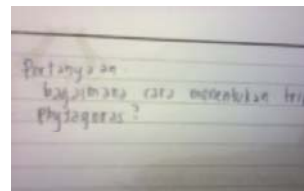 Pertanyaan
bagaimana cara menentukan
phytagoras?